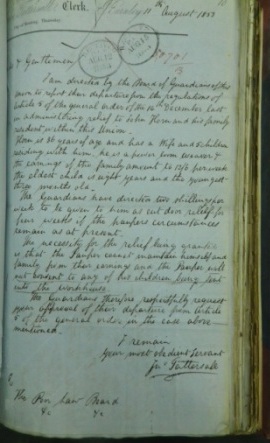 Clerk.
Burnley 11th August 1853
Gentlemen
I am directed by the Board of Guardians of this
Union to report their departure from the regulations of
Article 5 of the general order of the 14th December last
in administering relief to John Horn and his family
resident within this Union.
Horn is 38 years of age and has a Wife and 5 children
residing with him. he is a power loom weaver &
the earnings of the family amount to 13/3 per week
the eldest child is eight years and the youngest
three months old.
The Guardians have directed two shillings per
week to be given to them as out door relief for
four weeks if the paupers circumstances
remain as at present.
The necessity for the relief being granted
is that the Pauper cannot maintain himself and
family from their earnings and the Pauper will
not consent to any of his children being sent
into the workhouse.
The Guardians therefore respectfully request
your approval of their departure from Article
5 of the general order in the case above
mentioned.
I remain
Your most obedient Servant
Jno Tattersall
The Poor Law Board
&c &c